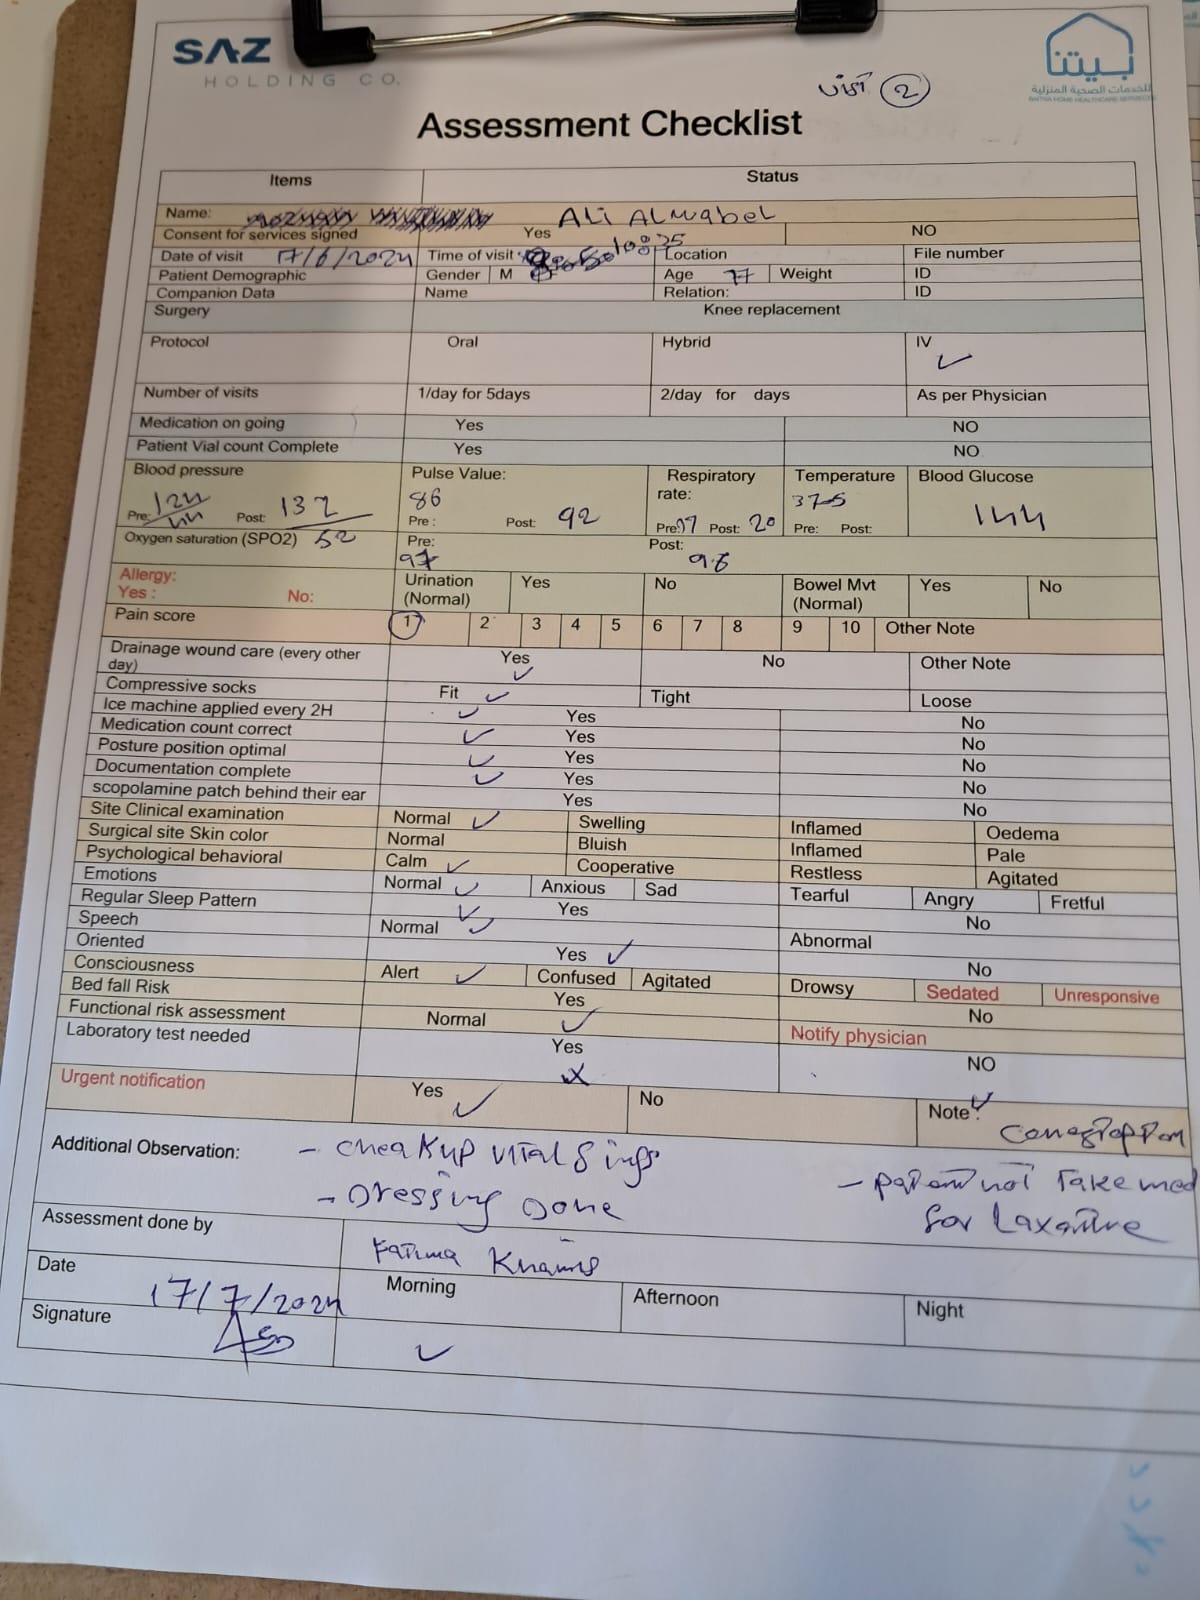 SAZ
HOLDING CO.
بيتنا
للخدمات الصحية المنزلية
2
Assessment Checklist
Items Status
Name: Ali Almabel
Consent for services signed Yes NO
Date of visit 17/6/2024 Time of visit: Location File number
Patient Demographic Gender M Age 77 Weight ID
Companion Data Name Relation: ID
Surgery Knee replacement
Protocol Oral Hybrid IV ✓
Number of visits 1/day for 5days 2/day for days As per Physician
Medication on going Yes NO
Patient Vial count Complete Yes NO
Blood pressure Pulse Value: Respiratory rate: Temperature Blood Glucose
Pre: 124/44 Post: 132 86 Pre: Post: 92 Pre: 17 Post: 20 37.5 Pre: Post: 144
Oxygen saturation (SPO2) 52 Pre: 97 Post: 98
Allergy: Yes: No: Urination (Normal) Yes No Bowel Mvt (Normal) Yes No
Pain score 1 2 3 4 5 6 7 8 9 10 Other Note
Drainage wound care (every other day) Yes ✓ No Other Note
Compressive socks Fit ✓ Tight Loose
Ice machine applied every 2H ✓ Yes No
Medication count correct ✓ Yes No
Posture position optimal ✓ Yes No
Documentation complete ✓ Yes No
scopolamine patch behind their ear Yes No
Site Clinical examination Normal ✓ Swelling Inflamed Oedema
Surgical site Skin color Normal Bluish Inflamed Pale
Psychological behavioral Calm ✓ Cooperative Restless Agitated
Emotions Normal ✓ Anxious Sad Tearful Angry Fretful
Regular Sleep Pattern ✓ Yes No
Speech Normal ✓ Abnormal
Oriented Yes ✓ No
Consciousness Alert ✓ Confused Agitated Drowsy Sedated Unresponsive
Bed fall Risk Yes No
Functional risk assessment Normal ✓ Notify physician
Laboratory test needed Yes x NO
Urgent notification Yes ✓ No Note: ✓
Additional Observation: - cheakup vital Sings
- Dressing Done
- patient not Take med
for Laxative
Assessment done by Fatima Khamis
Date 17/7/2024 Morning Afternoon Night
Signature ✓